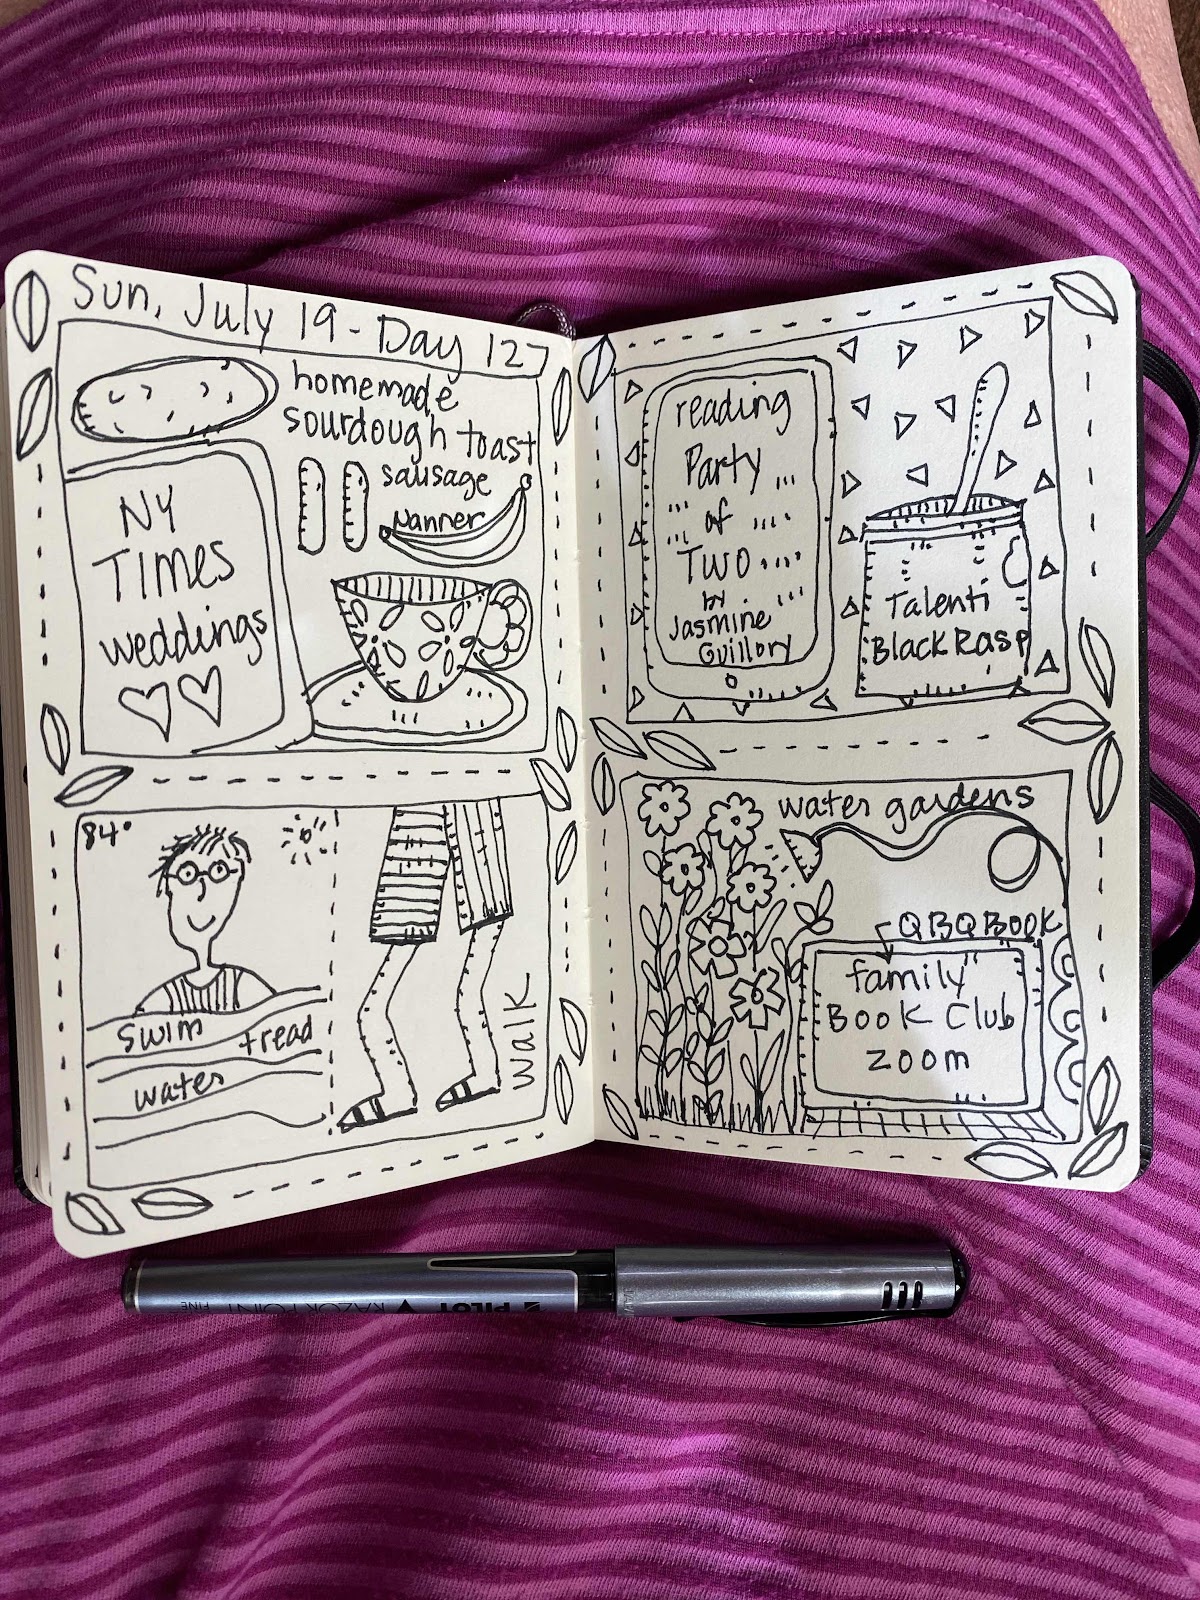 Sun, July 19 - Day 127
homemade
sourdough toast
sausage
nanner
NY
Times
weddings
84°
swim
tread
water
walk
reading
Party
of
Two
by
Jasmine
Guillory
Talenti
Black Rasp
water gardens
QBQ BOOK
family
Book Club
zoom
PILOT RAZOR POINT
FINE